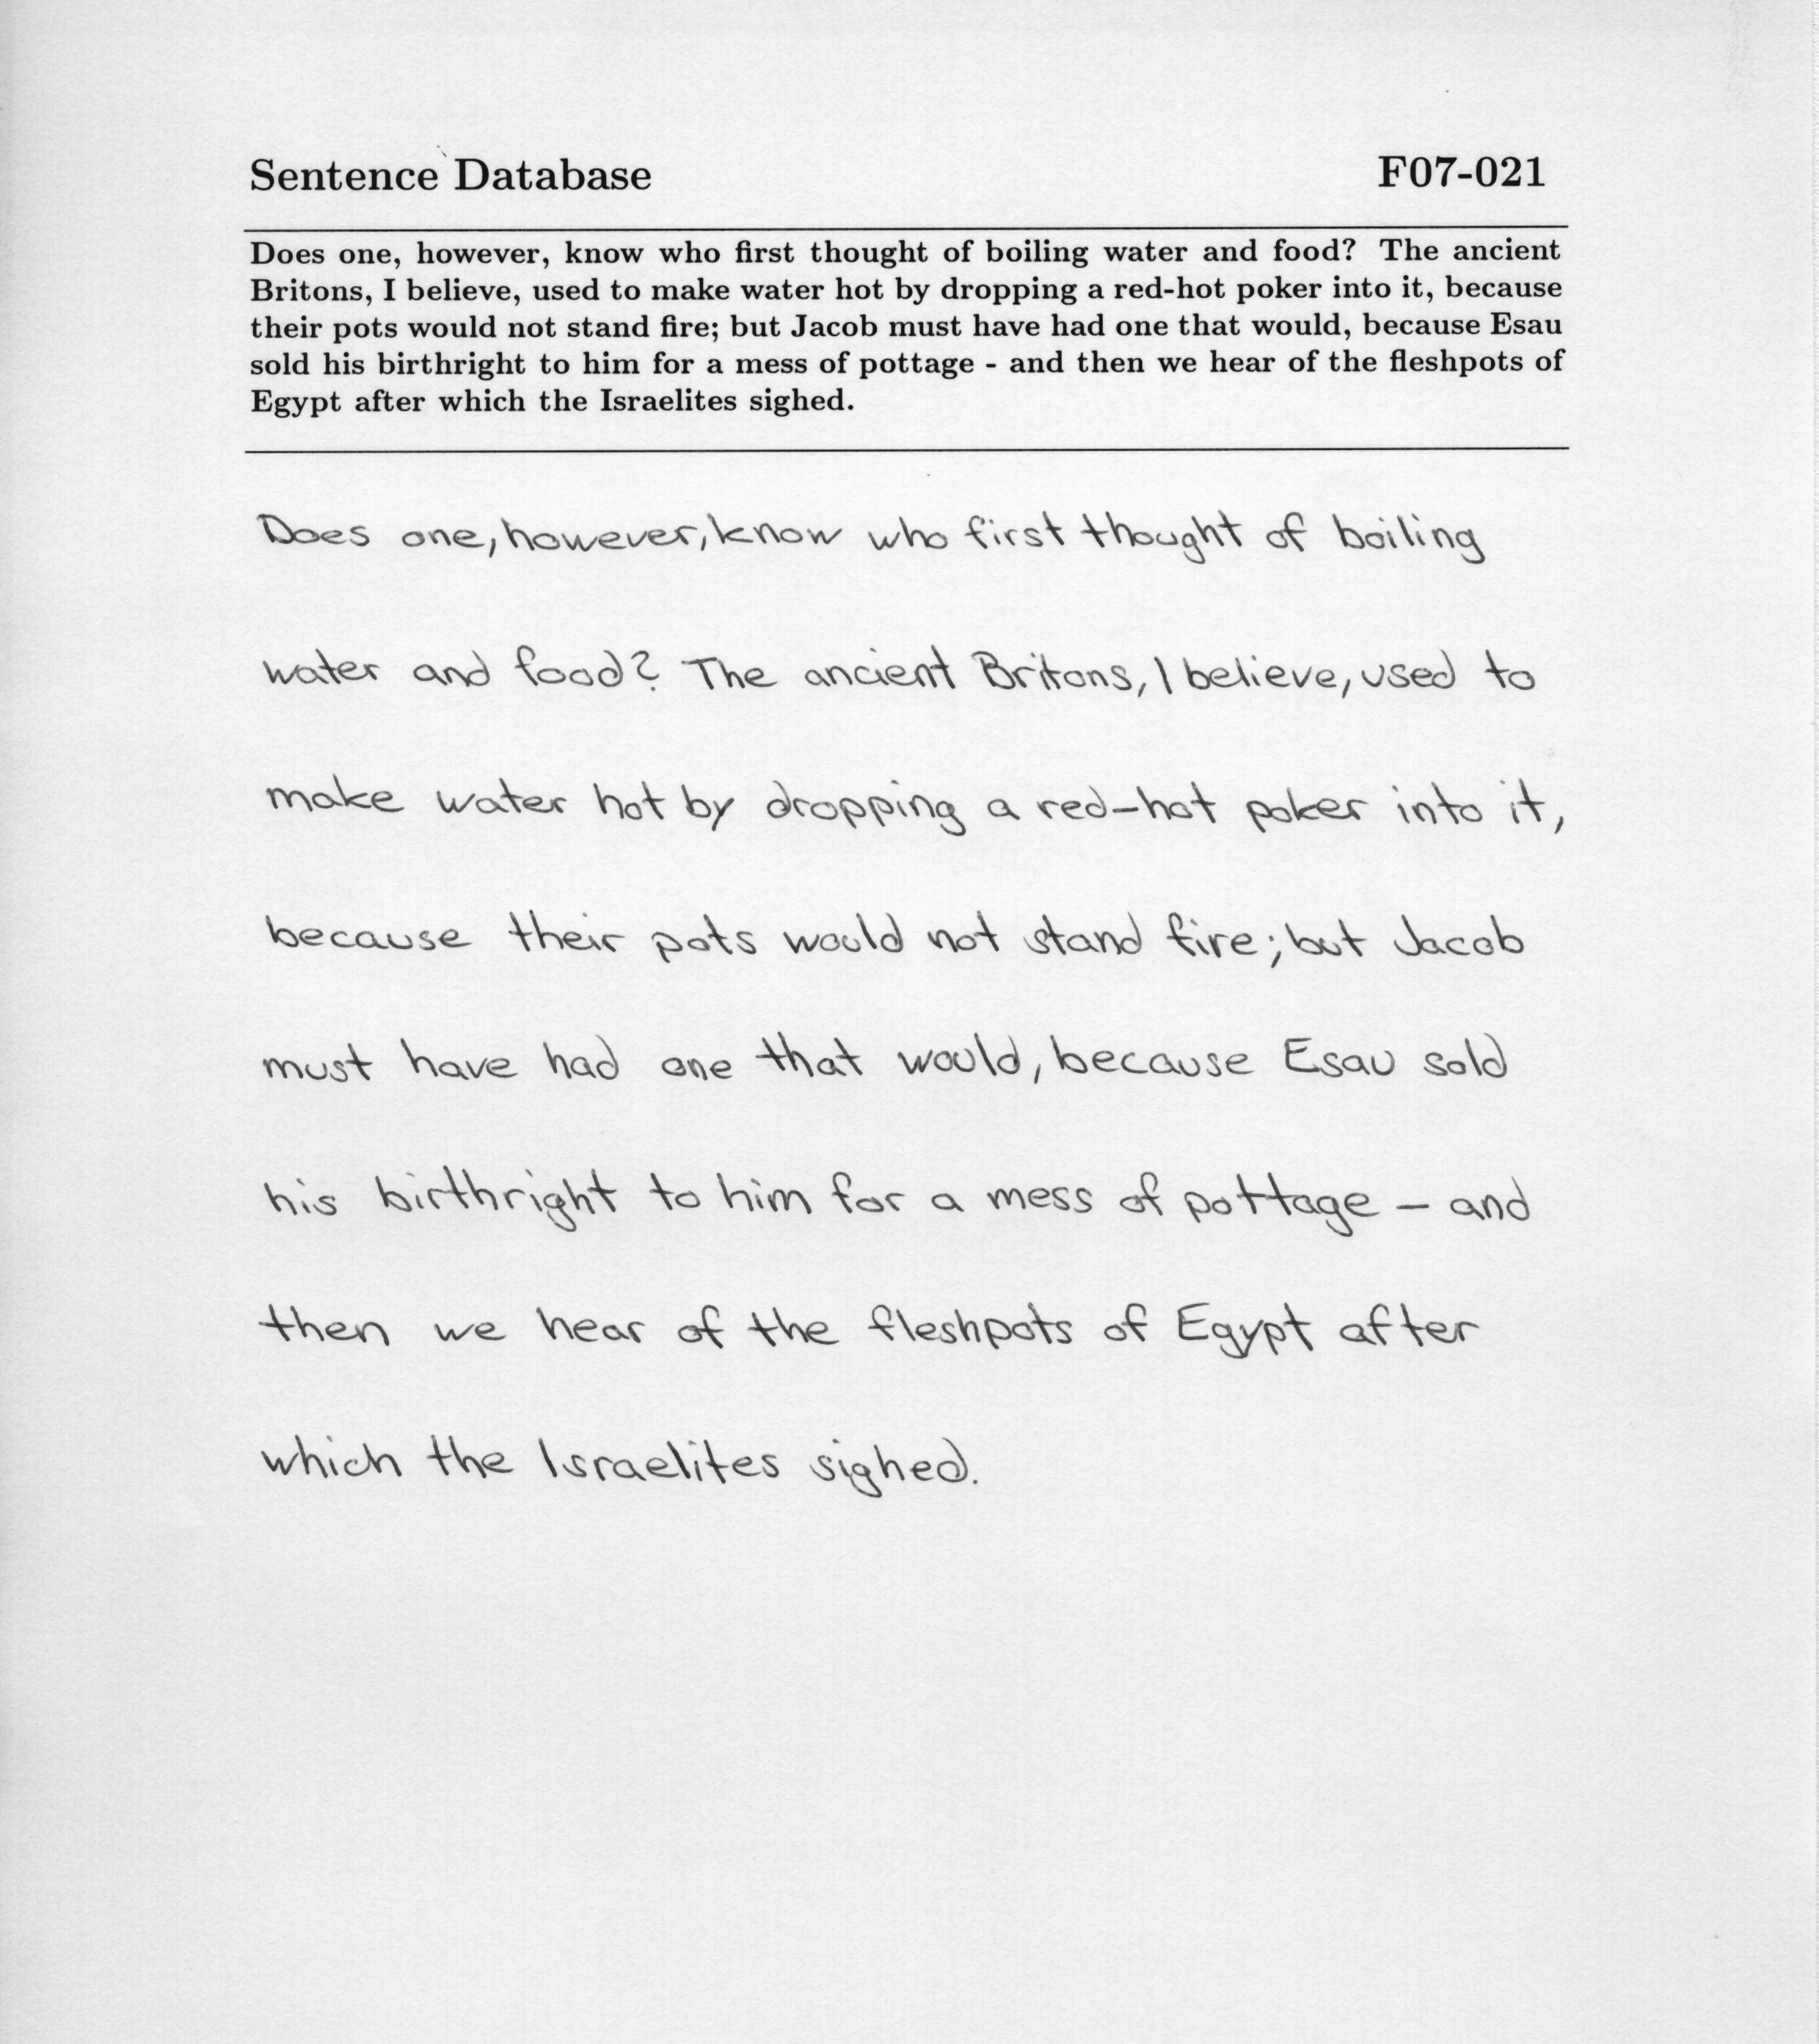 Sentence Database F07-021
Does one, however, know who first thought of boiling water and food? The ancient
Britons, I believe, used to make water hot by dropping a red-hot poker into it, because
their pots would not stand fire; but Jacob must have had one that would, because Esau
sold his birthright to him for a mess of pottage - and then we hear of the fleshpots of
Egypt after which the Israelites sighed.
Does one, however, know who first thought of boiling
water and food? The ancient Britons, I believe, used to
make water hot by dropping a red-hot poker into it,
because their pots would not stand fire; but Jacob
must have had one that would, because Esau sold
his birthright to him for a mess of pottage - and
then we hear of the fleshpots of Egypt after
which the Israelites sighed.